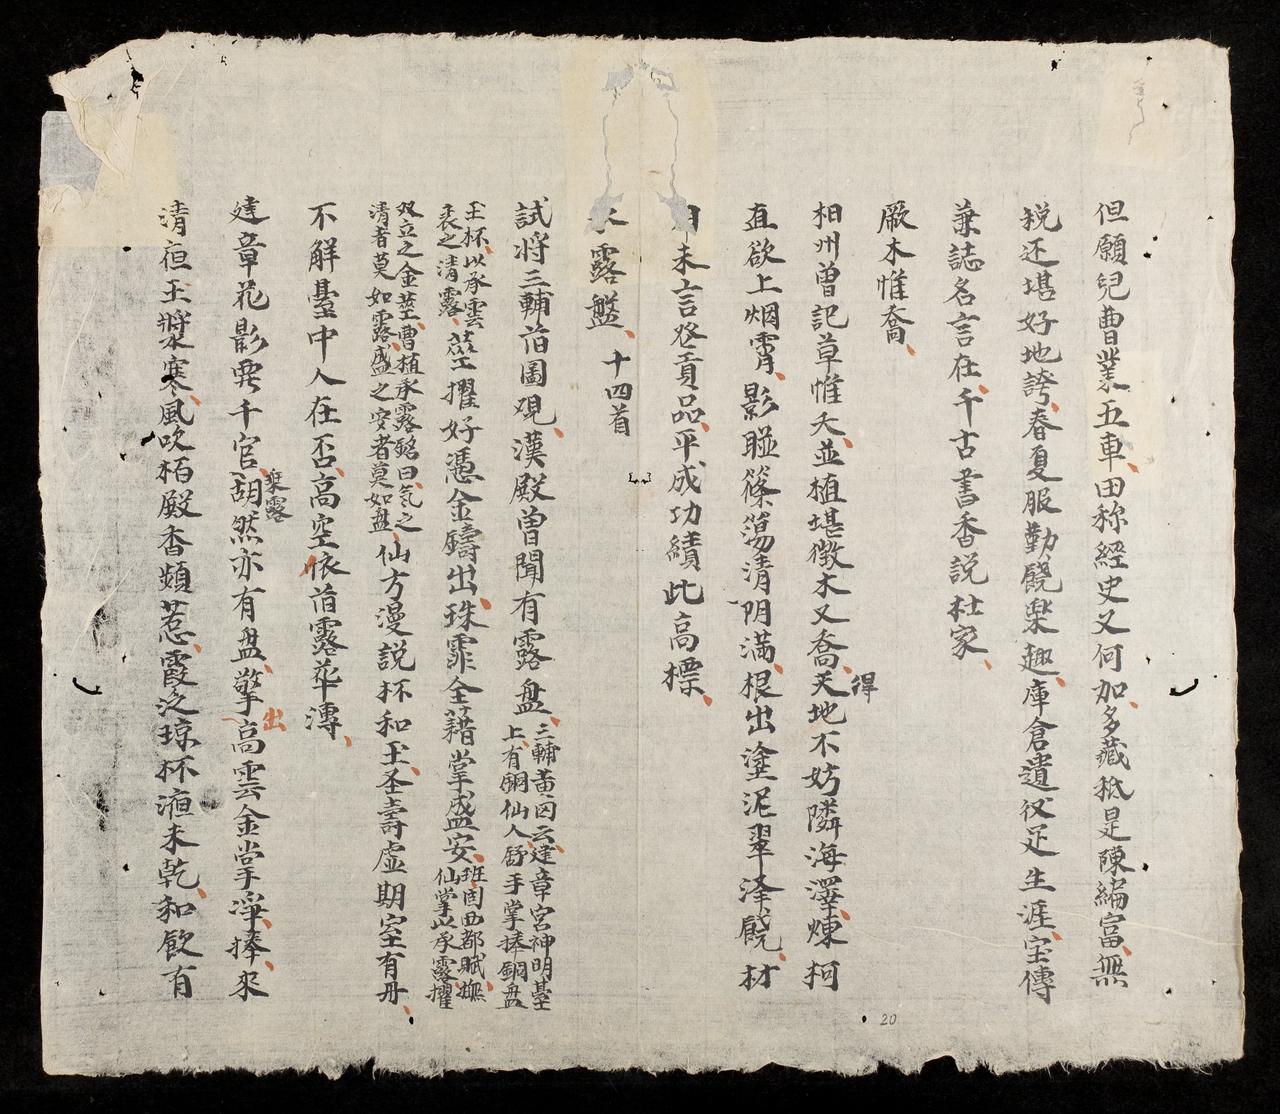 但願兒曹業五車田称經史又何加多藏秖是陳編富無
税还堪好地誇春夏服勤饒楽趣庫倉遺役足生涯宝傳
兼誌名言在千古書香説杜家
厥木惟喬
相州曽記草惟夭並植堪徴木又喬天地不妨隣海澤煉柯
得
直欲上烟霄影聯篠簜清阴满根出塗泥翠泽饒材
用未言登貢品平成功績此高標
承露盤 十四首
試將三輔旧圖观漢殿曽聞有露盘
三輔黄图云建章宫神明臺
上有銅仙人舒手掌捧銅盘
玉杯以承雲
表之清露
莖擢好憑金鑄出珠霏全藉掌盛安
班固西都賦撫
仙掌以承露擢
双立之金莖曹植承露銘曰氣之
清者莫如露盛之安者莫如盘
仙方漫説杯和玉圣壽虚期室有丹
不解臺中人在否高空依旧露花漙
建章花影坐千官胡然亦有盘擎高雲金掌净捧來
承露
出
清夜玉漿寒風吹栢殿香頻惹霞泛琼杯液未乾和飲有
20